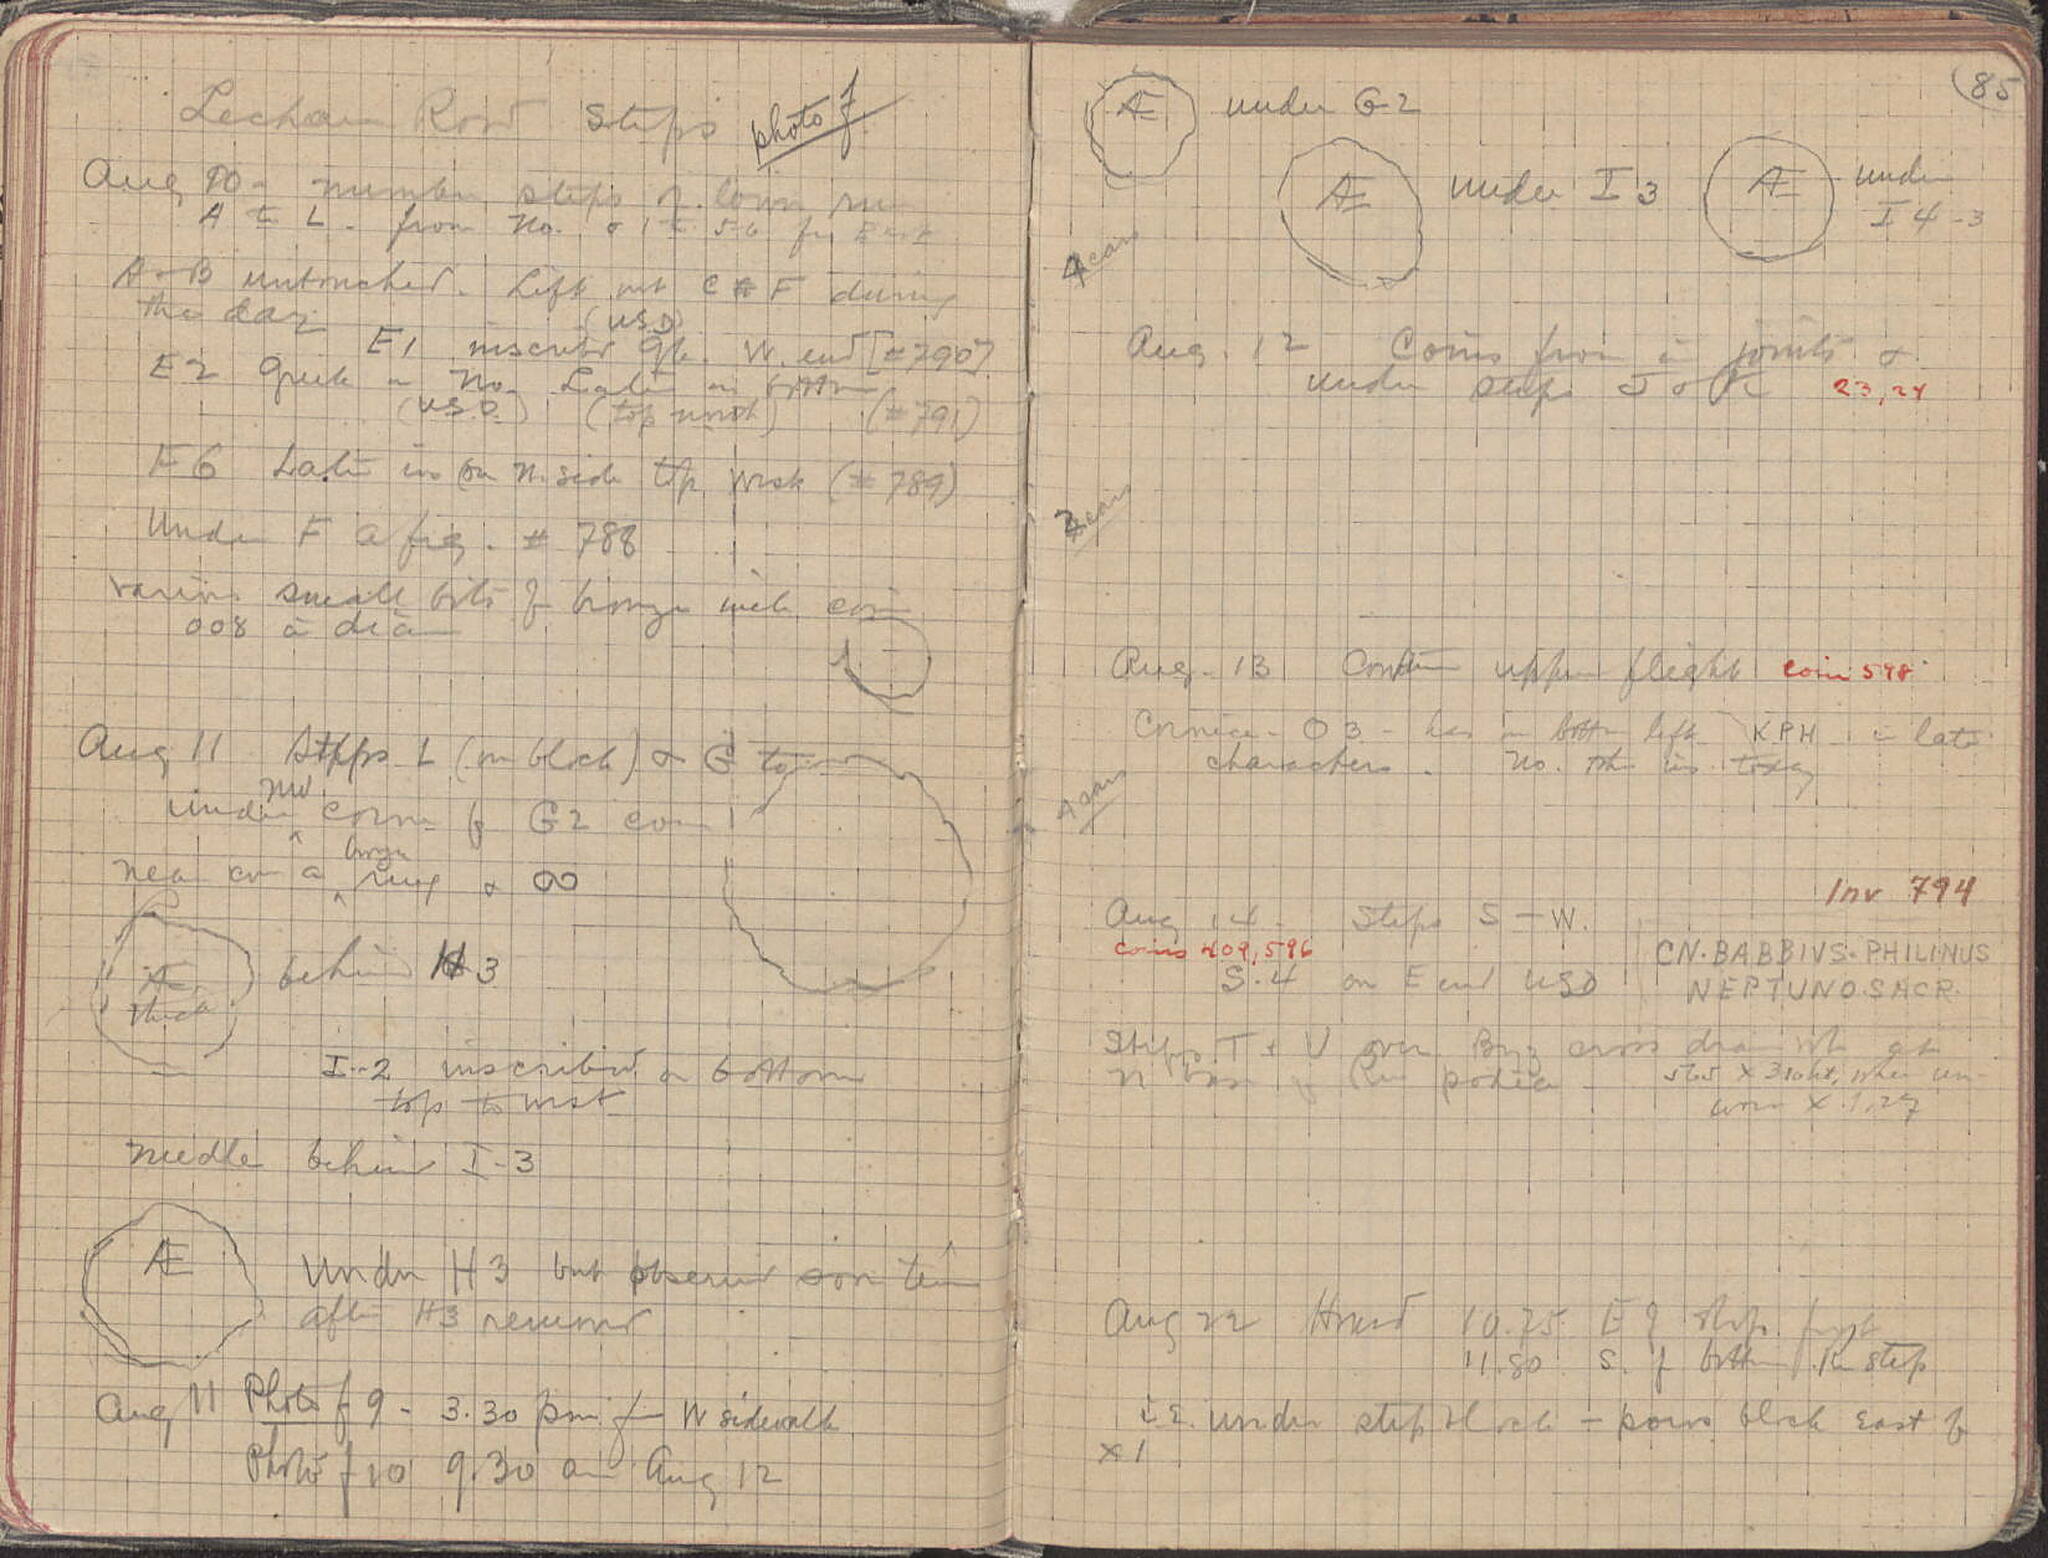 Lechaion Road Steps photo f
Aug 10 - number steps of lower run
A to L - from No. 01 to 56 fr East
A-B untouched. Left out C F during
the day (U.S.D)
E1 inscribed Gk. W. end [#790]
E2 Greek on No. Latin on bottom
(U.S.D.) (top north) (#791)
F6 Latin ins on N. side top West (#789)
Under F a fig. # 788
Various small bits of bronze incl. coin
008 in diam
Aug 11 Steps L (one block) & G to
under NW corner of G2 coin
near coin a bronze ring & ∞
Æ
thick
behind H3
I-2 inscribed on bottom
top to West
needle behind I-3
Æ
Under H3 but observed
after H3 removed
Aug 11 Photo f 9 - 3.30 pm. fr W sidewalk
Photo f 10 9.30 am Aug 12
85
Æ under G2
Æ under I3
Æ under
I 4-3
4 cars
Aug. 12 Coins from in joints &
under steps J & K 23, 24
2 cars
Aug. 13 Continue upper flight coin 598
Cornice - O3 - has on bottom left KPH in late
characters. No. other ins. today
4 cars
Inv 794
Aug 14 - Steps S - W.
coins 409, 596
S. 4 on E end USD
CN·BABBIVS·PHILINUS
NEPTUNO.SACR.
Steps T + U over Byz cross drain
N
Aug 22 Hoard 10.75 E of steps
11.80 S. of bottom step
i.e. under step block - poros block East of
x 1